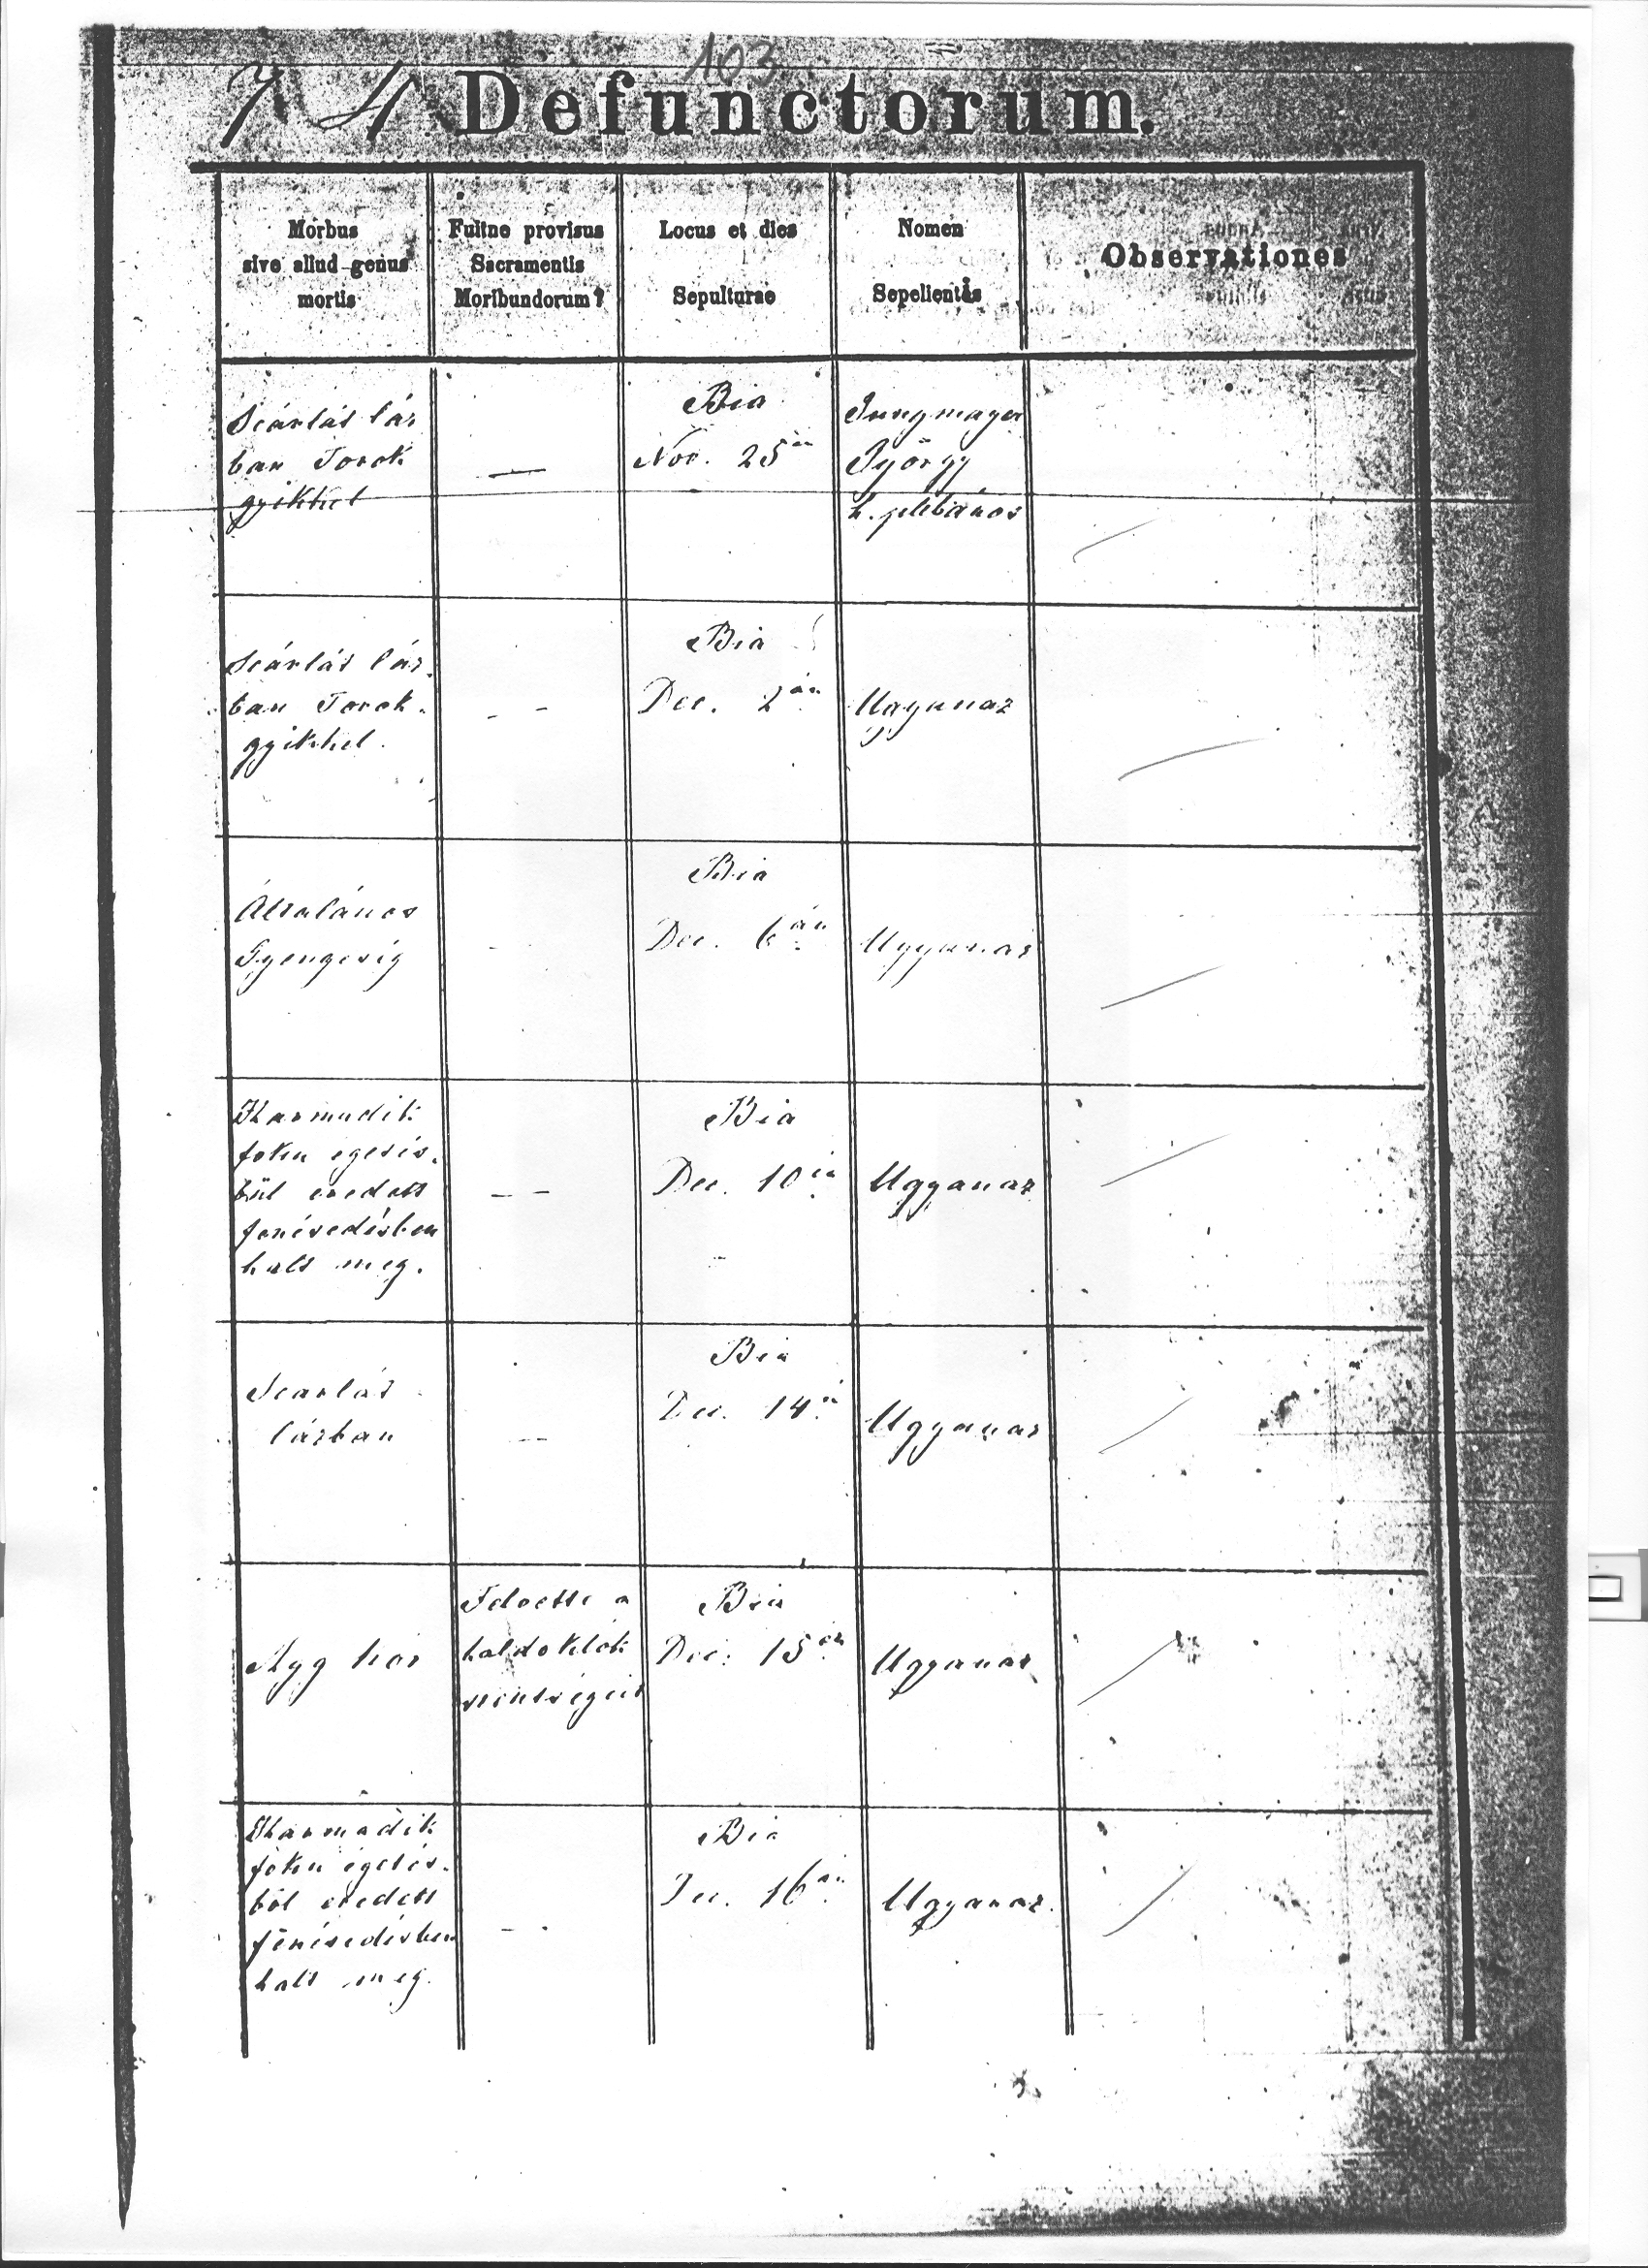 103
74 Defunctorum.
Morbus
sive aliud genus
mortis
Fuitne provisus
Sacramentis
Moribundorum?
Locus et dies
Sepulturae
Nomen
Sepelientis
Observationes
Scárlát láz
ban Torok
gyikkel
—
Bia
Nov. 25én
Jungmayer
György
h. plébános
Scárlát láz.
ban Torok.
gyikkel.
- -
Bia
Dec. 2án
Ugyanaz
Általános
Gyengeség
-
Bia
Dec. 6án
Ugyanaz
Harmadik
foku egetés.
ből eredett
fenésedésben
halt meg.
- -
Bia
Dec. 10én
Ugyanaz
Scarlát
lázban
- -
Bia
Dec. 14én
Ugyanaz
Agg kor
Felvette a
haldoklók
szentségeit
Bia
Dec. 15én
Ugyanaz
Harmadik
foku égetés.
ből eredett
fenésedésben
halt meg.
- -
Bia
Dec. 16án
Ugyanaz.